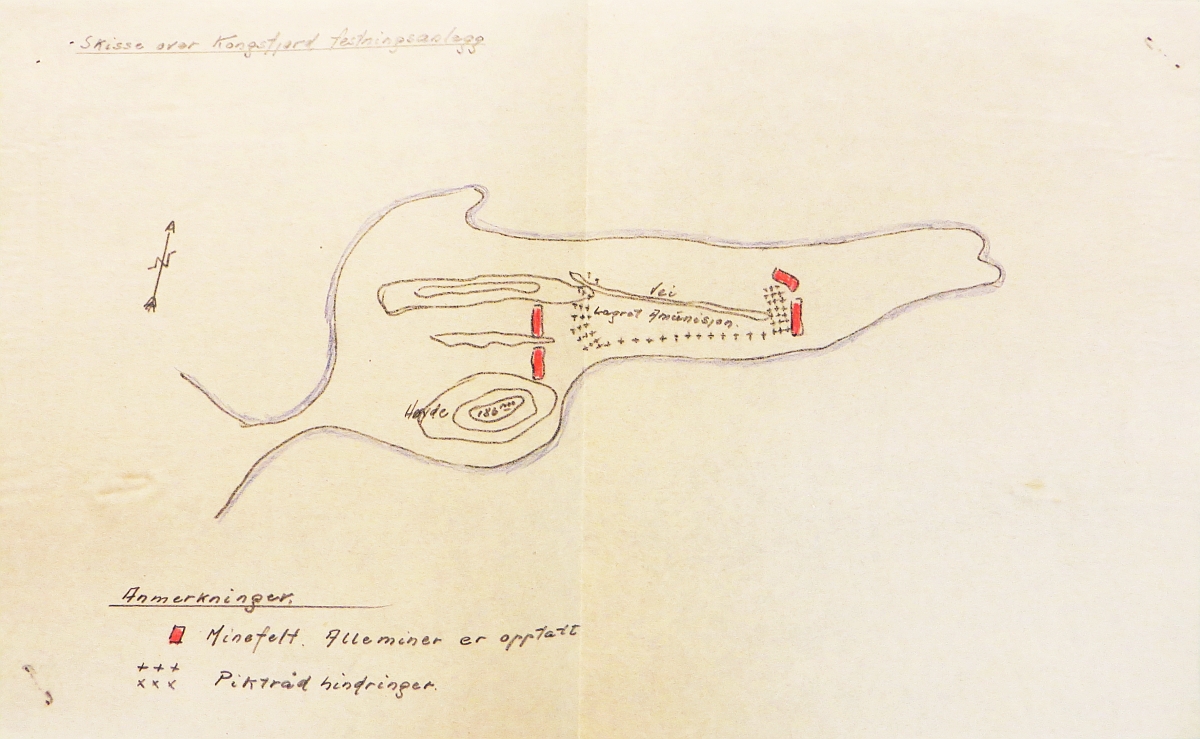 Skisse over Kongsfjord festningsanlegg
Vei
Lagret Amunisjon.
Høyde
186
Anmerkninger.
Minefelt. Alle miner er opptatt
+ + +
x x x
Piktråd hindringer.